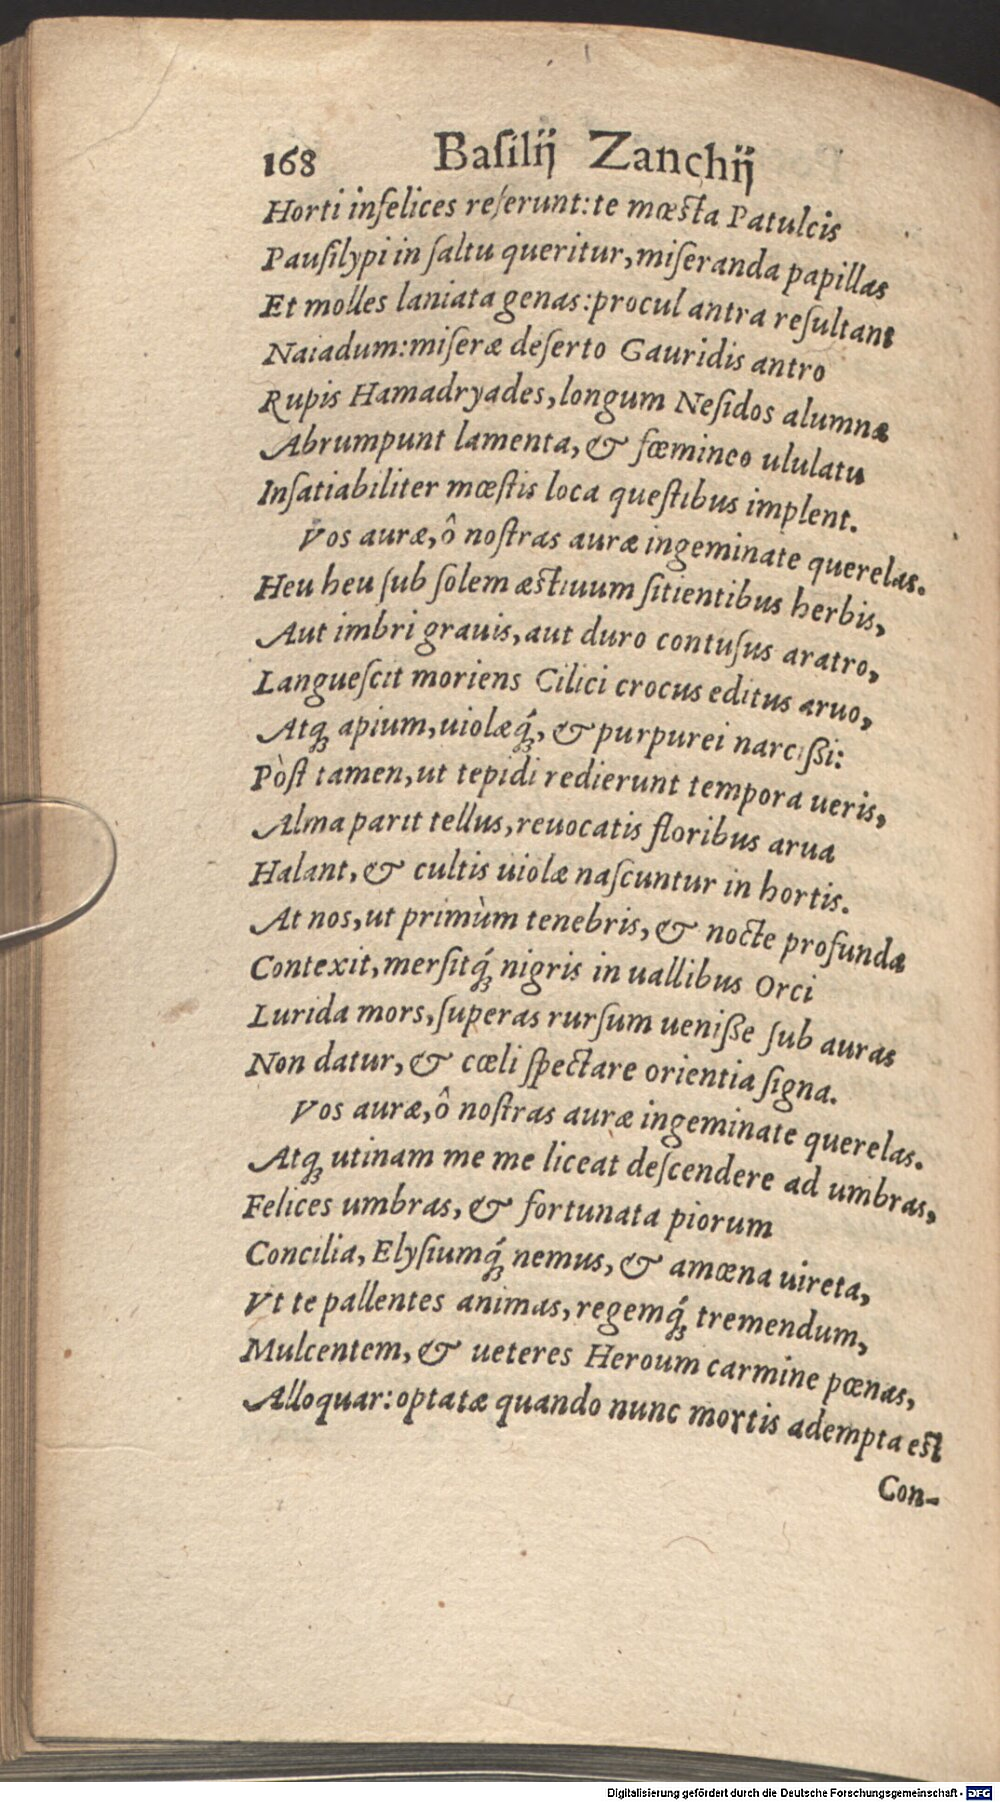 168 Baſilij Zanchij
Horti infelices referunt: te mœſta Patulcis
Pauſilypi in ſaltu queritur, miſeranda papillas
Et molles laniata genas: procul antra reſultant
Naiadum: miſeræ deſerto Gauridis antro
Rupis Hamadryades, longum Neſidos alumnæ
Abrumpunt lamenta, & fœmineo ululatu
Inſatiabiliter mœſtis loca queſtibus implent.
Vos auræ, ô noſtras auræ ingeminate querelas.
Heu heu ſub ſolem æſtiuum ſitientibus herbis,
Aut imbri grauis, aut duro contuſus aratro,
Langueſcit moriens Cilici crocus editus aruo,
Atq; apium, uiolæq́;, & purpurei narciſſi:
Pòſt tamen, ut tepidi redierunt tempora ueris,
Alma parit tellus, reuocatis floribus arua
Halant, & cultis uiolæ naſcuntur in hortis.
At nos, ut primùm tenebris, & nocte profunda
Contexit, merſitq́; nigris in uallibus Orci
Lurida mors, ſuperas rurſum ueniſſe ſub auras
Non datur, & cœli ſpectare orientia ſigna.
Vos auræ, ô noſtras auræ ingeminate querelas.
Atq; utinam me me liceat deſcendere ad umbras,
Felices umbras, & fortunata piorum
Concilia, Elyſiumq́; nemus, & amœna uireta,
Vt te pallentes animas, regemq́; tremendum,
Mulcentem, & ueteres Heroum carmine pœnas,
Alloquar: optatæ quando nunc mortis adempta eſt
Con-
Digitalisierung gefördert durch die Deutsche Forschungsgemeinschaft - DFG